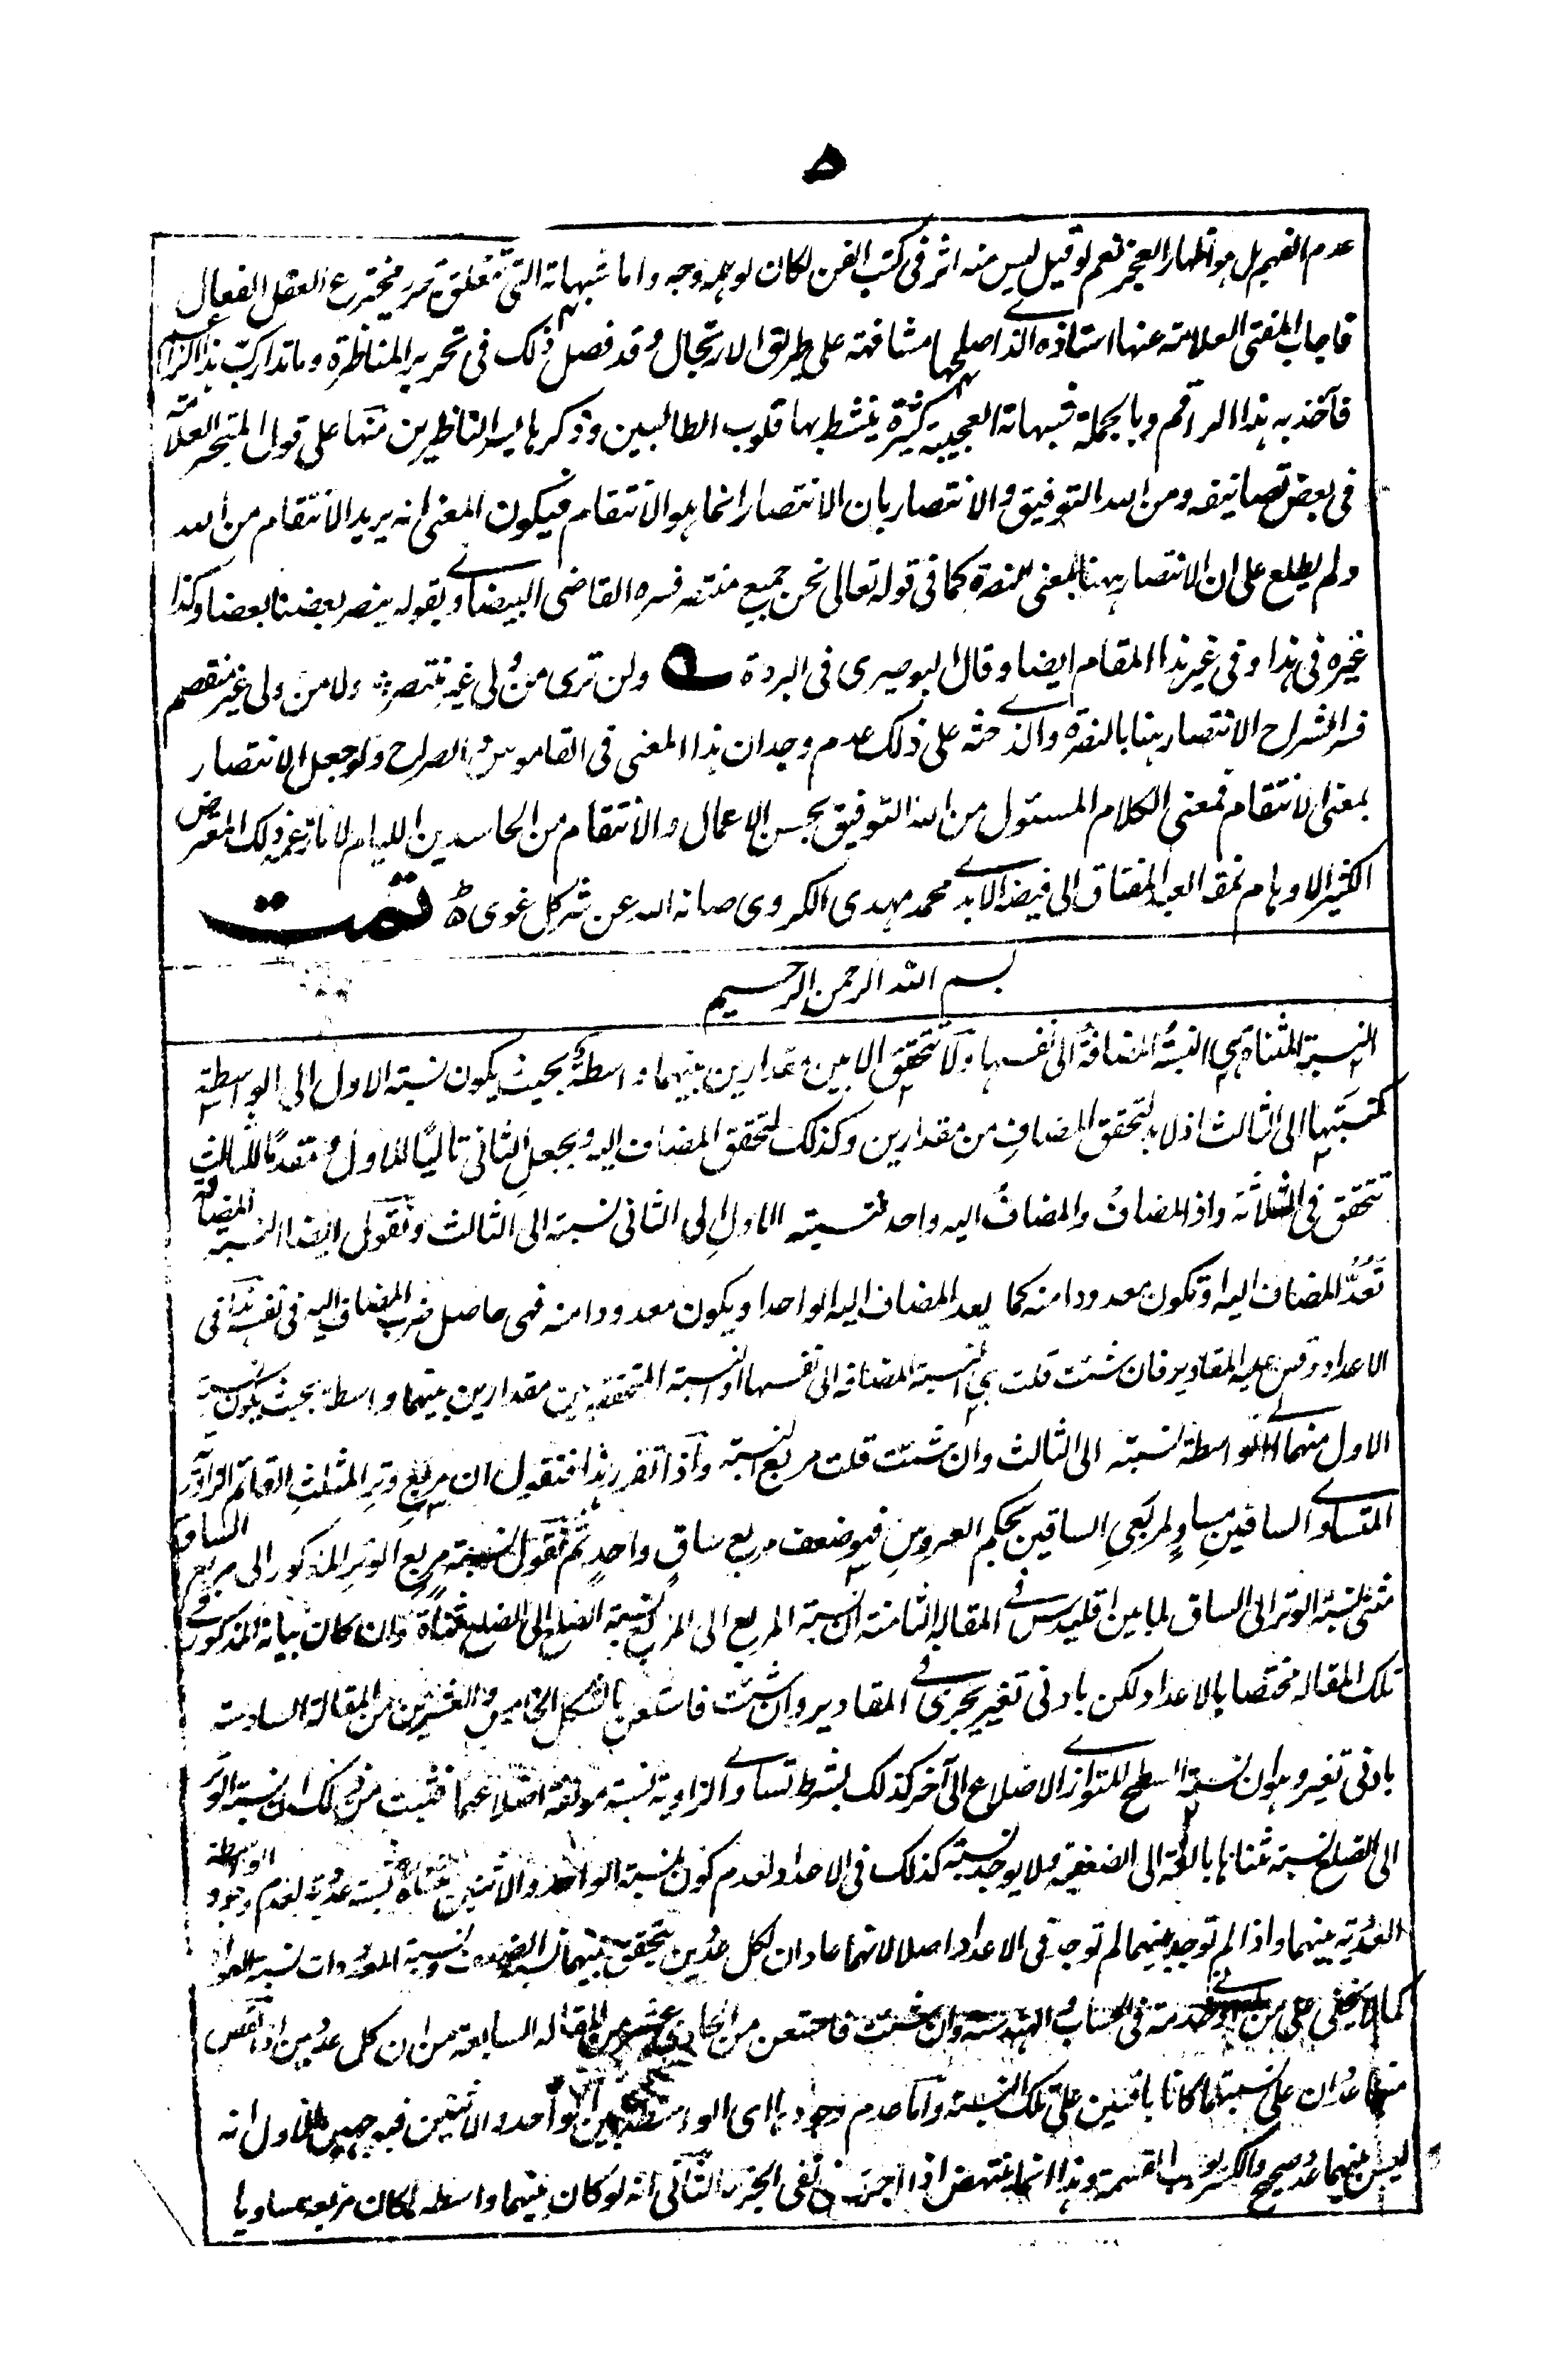 ۵
عدم الفهم بل هو اظهار العجز نعم لو قيل ليس منه اثر فى كتب الفن لكان لوهمه وجه واما شبهاته التى تتعلق مخترع العقل الفعال
فاجاب المفتى العلامة عنها استاذه الذى اصلحها مشافهة على طريق الارتجال وقد فصل ذلك فى تحرير المناظرة وما تدارك
فآخذ به هذا الراقم وبالجملة شبهاته العجيبة كثيرة ينشط بها قلوب الطالبين وذكرها الناظرين منها على قول المتبحر العلامة
فى بعض تصانيفه ومن الله التوفيق والانتصار بان الانتصار انما هو الانتقام فيكون المعنى انه يريد الانتقام من الله
ولم يطلع على ان الانتصار ههنا بمعنى النصرة كما فى قوله تعالى نحن جميع منتصر فسره القاضى البيضاوى بقوله ينصر بعضنا بعضا وكذا
غيره فى هذا وفى غير هذا المقام ايضا وقال البوصيرى فى البردة ولن ترى من ولى غير منتصر به ولا من ولى غير منقصم
فسر الشراح الانتصار هنا بالنصرة والذى حثه على ذلك عدم وجدان هذا المعنى فى القاموس والصراح ولو جعل الانتصار
بمعنى الانتقام فمعنى الكلام المسئول من الله التوفيق بحسن الاعمال والانتقام من الحاسدين الليام لا ما زعمه ذلك المعترض
الكثير الاوهام نمقه العبد المفتاق الى فيضه الابدى محمد مهدى الكروى صانه الله عن شر كل غوى تمت
بسم الله الرحمن الرحيم
النسبة المثناة هى النسبة المضافة الى نفسها ولا تتحقق الا بين مقدارين بينهما واسطة بحيث يكون نسبة الاول الى الواسطة
كنسبتها الى الثالث اذ لا بد لتحقق المضاف من مقدارين وكذلك لتحقق المضاف اليه وبجعل الثانى تاليا للاول ومقدما للثالث
تتحقق فى الثلاثة واذ المضاف والمضاف اليه واحد فنسبة الاول الى الثانى نسبته الى الثالث ونقول ايضا النسبة المضافة
تعد المضاف اليه او تكون معدودا منه كما يعد المضاف اليه الواحد او يكون معدودا منه فهى حاصل ضرب المضاف اليه فى نفسه هذا فى
الاعداد وقس عليه المقادير فان شئت قلت هى النسبة المضافة الى نفسها او النسبة المتحققة بين مقدارين بينهما واسطة بحيث يكون نسبة
الاول منهما الى الواسطة نسبته الى الثالث وان شئت قلت مربع النسبة واذا تقرر هذا فنقول ان مربع وتر المثلث القائم الزاوية
المتساوى الساقين مساو لمربعى الساقين بحكم العروس فهو ضعف مربع ساق واحد ثم نقول نسبة مربع الوتر المذكور الى مربع الساق
مثنى نسبة الوتر الى الساق لما بين اقليدس فى المقالة الثامنة ان نسبة المربع الى المربع نسبة الضلع الى الضلع مثناة وان كان بيانه المذكور فى
تلك المقالة مختصا بالاعداد لكن بادنى تغير يجرى فى المقادير وان شئت فاستعن بالشكل الخامس والعشرين من المقالة السادسة
بادنى تغير وهو ان نسبة السطح المتوازى الاضلاع الى آخر كذلك بشرط تساوى الزاوية نسبة مؤلفة اضلاعهما فثبت من ذلك ان نسبة الوتر
الى الضلع نسبة مثناها بالغة الى الضعفية ولا يوجد نسبة كذلك فى الاعداد لعدم كون نسبة الواحد والاثنين مثناة نسبة عددية لعدم وجود الواسطة
العددية بينهما واذا لم توجد بينهما لم توجد فى الاعداد اصلا لانهما عادان لكل عددين تتحقق بينهما نسبة الضعف ونسبة المعدودات نسبة العواد
كما لا يخفى على من له خدمة فى الحساب والهندسة وان شئت فاستعن من الحادى عشر من المقالة السابعة من ان كل عددين اذا نقص
منهما عددان على نسبتهما كانا باقيين على تلك النسبة واما عدم وجودها اى الواسطة بين الواحد والاثنين ففيه وجهين الاول انه
ليس بينهما عدد صحيح والكسر يوجب القسمة وهذا انما ينتهض اذا نفى الجزء الثانى انه لو كان بينهما واسطة لكان مربعه مساويا